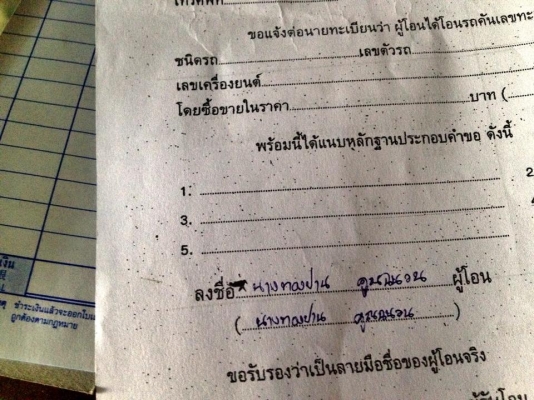 ขอแจ้งต่อนายทะเบียนว่า ผู้โอนได้โอนรถคันเลขทะ
ชนิดรถ เลขตัวรถ
เลขเครื่องยนต์
โดยซื้อขายในราคา บาท (
พร้อมนี้ได้แนบหลักฐานประกอบคำขอ ดังนี้
1.
3.
5.
ลงชื่อ นางทองปาน ผู้โอน
( นางทองปาน )
ขอรับรองว่าเป็นลายมือชื่อของผู้โอนจริง
ชำระเงินแล้วจะออกใบเ
ถูกต้องตามกฎหมาย